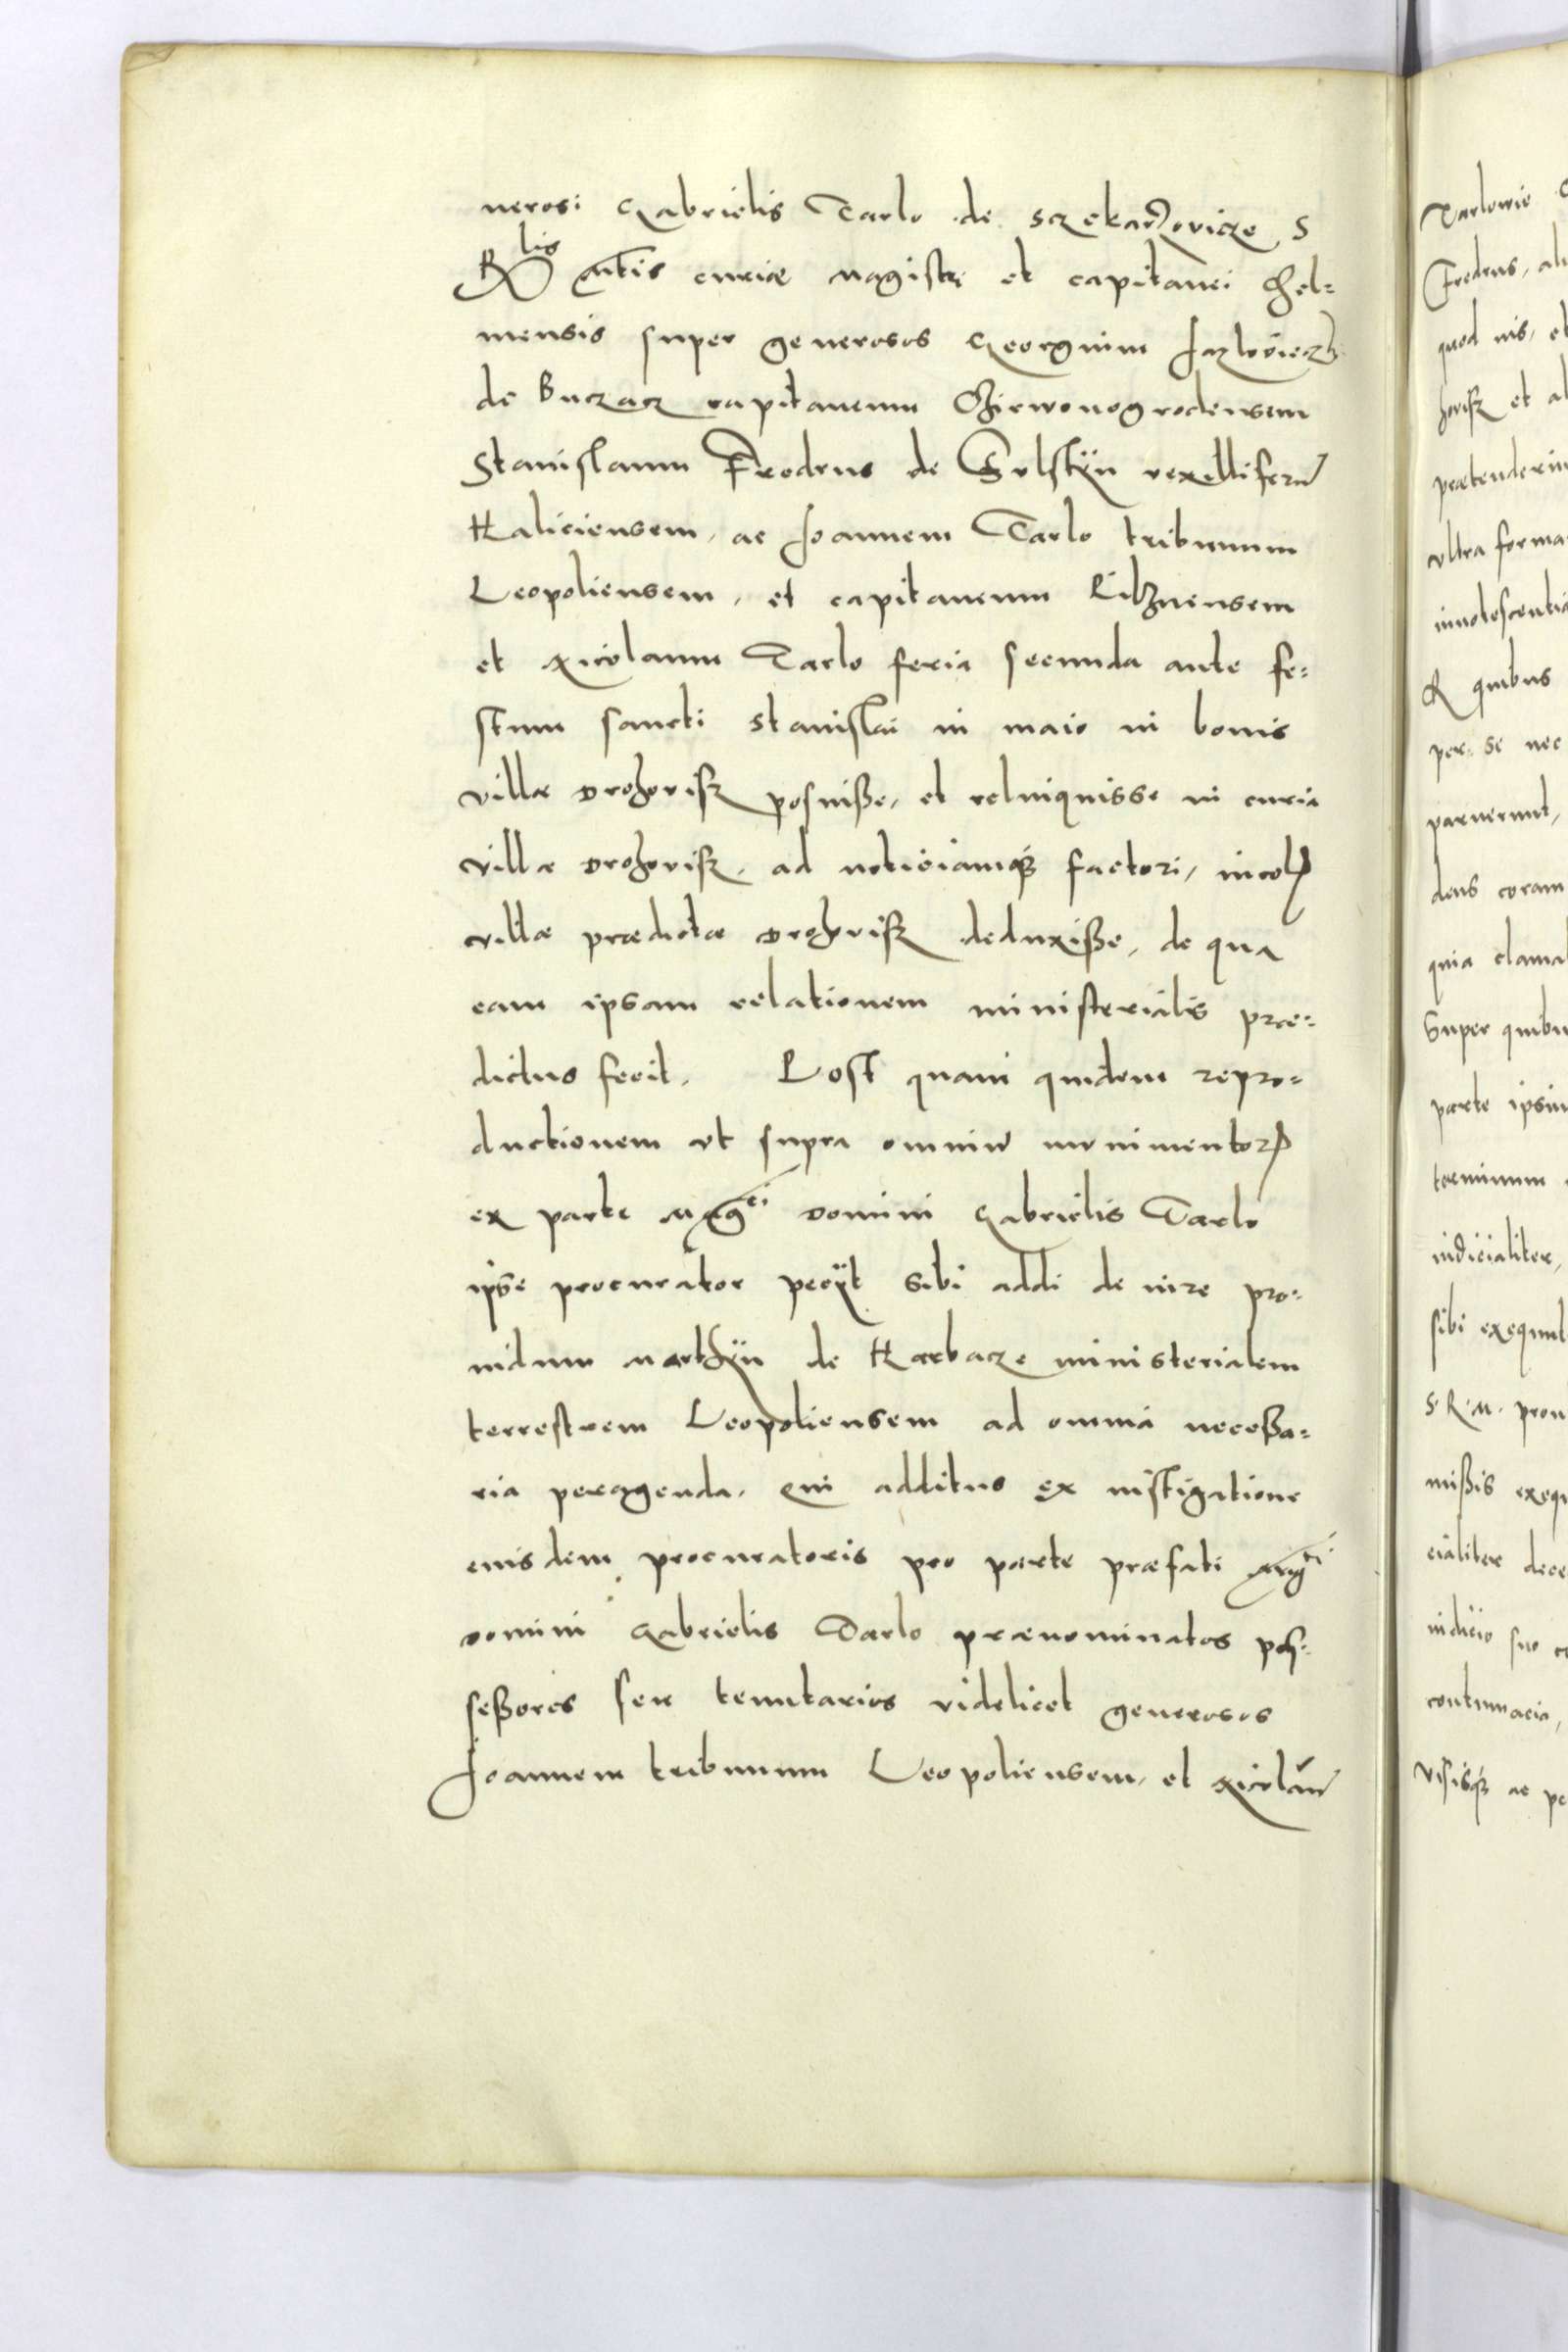 nerosi Gabrielis Tarlo de Sczekarzovicze S
R lis Mtis curiæ magistri et capitanei Chel=
mensis super generosos Georgium Jazlovieczki
de Buczacz capitaneum Chirwonogrodensem
Stanislaum Fredrus de Sulstÿn vexilliferũ
Haliciensem, ac Joannem Tarlo tribunum
Leopoliensem, et capitaneum Pilznensem
et Nicolaum Tarlo feria secunda ante fe=
stum sancti Stanislai in maio in bonis
villæ Drohovisz posuisse, et reliniquisse in curia
villæ Drohovisz, ad noticiamq3 factori, incolꝝ
villæ prædictæ Drohovisz deduxisse, de qua
eam ipsam relationem ministerialis præ=
dictus fecit. Post quam quidem repro=
ductionem ut supra omniũ munimentorꝝ
ex parte Mag ci Domini Gabrielis Tarlo
ipse procurator peciit sibi addi de iure pro=
uidum de Harbacze ministerialem
terrestrem Leopoliensem ad omnia necessa=
ria peragenda, qui additus ex instigatione
eiusdem procuratoris pro parte præfati Mag ci
Domini Gabrielis Tarlo prænominatos pos=
sessores seu tenutarios videlicet generosos
Joannem tribunum Leopoliensem, et Nicolaũ
Tarlowie
Fredrus,
quod
et
prætenderin
ultra forma
innotescentia
quibus
per se nec
paruerunt,
coram
quia clama
Super quibu
parte ipsiu
terminum
iudicialiter,
sibi exequut
S. R. M. pron
missis exequ
cialiter dece
iudicio suo
contumacia,
visisq3 ac pe